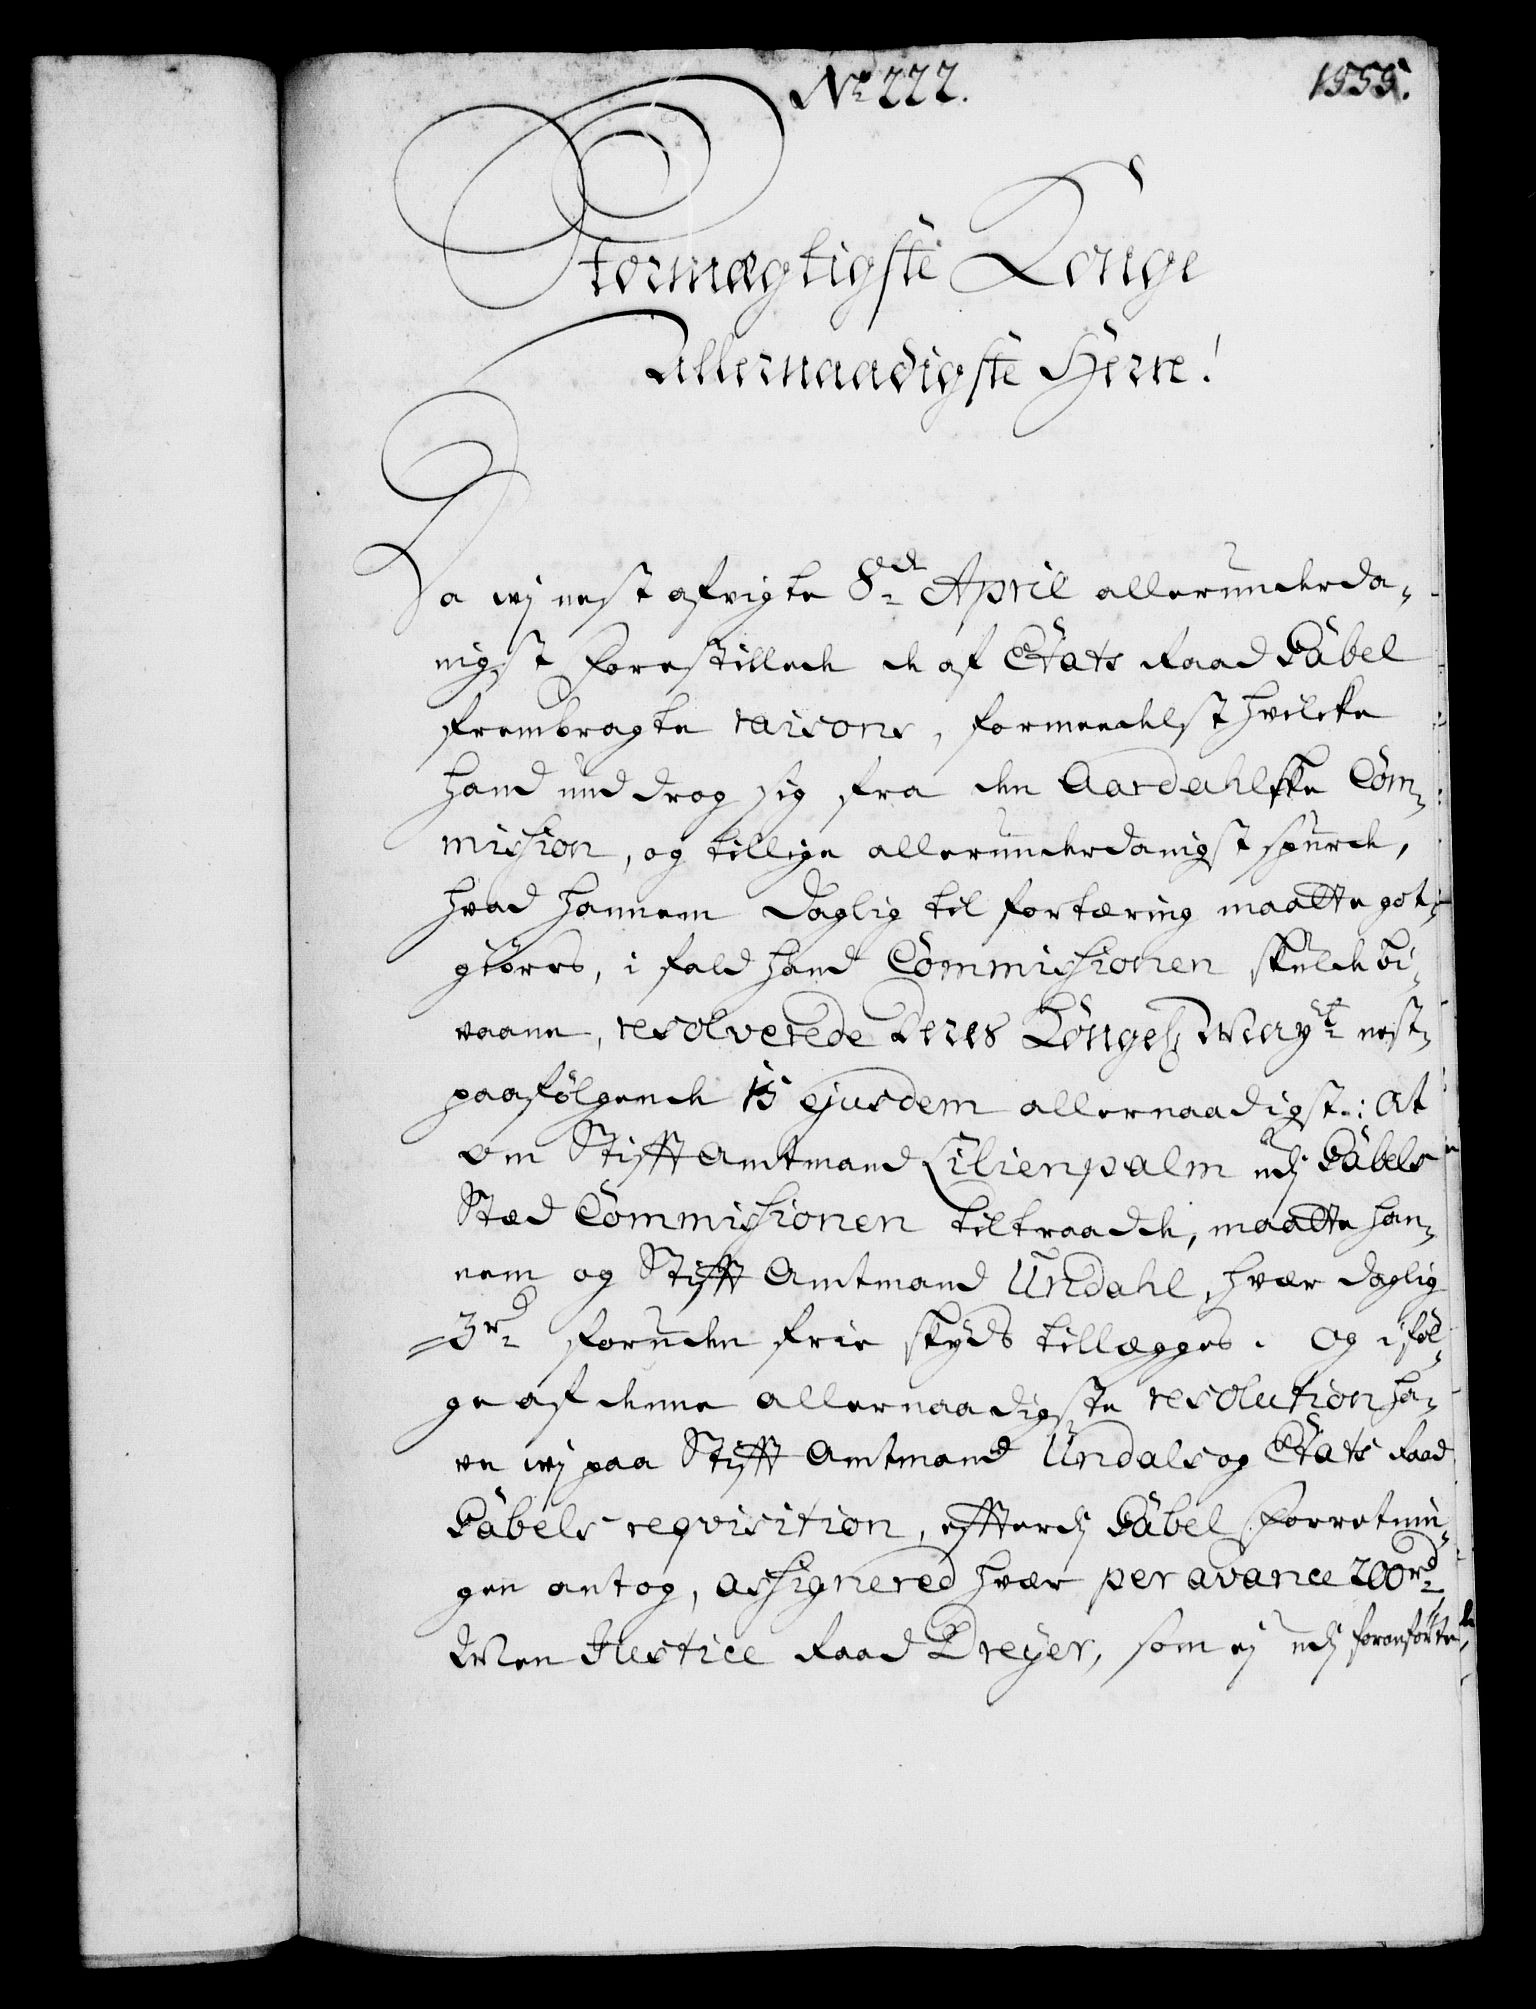 No 222. 1555.
Stormægtigste Konge
Allernaadigste Herre!
Da wj nest afvigte 8de April allerunderda-
nigst forestillede de af Etats Raad Gåbel
frembragte raisons, formedelst hvilcke
hand unddrog sig fra den Aardahlske Com-
mission, og tillige allerunderdanigst spurde,
hvad hannem daglig til fortæring maatte got-
giøres, i fald hand Commissionen skulde bi-
vaane, resolverede Deres Kongel Mayt nest-
paafølgende 15 ejusdem allernaadigst: At
om Stifft Amtmand Lilienpalm udj Gåbels
Stæd Commissionen tiltraadde, maatte han-
nem og Stifft Amtmand Undahl, hver daglig
3rd foruden frie skyds tillægges. Og i føl-
ge af denne allernaadigste resolution ha-
ve wj paa Stifft Amtmand Undals og Etats Raad
Gåbels reqvisition, efterdj Gåbel Forretnin-
gen antog, assignered hver per avance 200rd,
Men Justice Raad Dreyer, som ej udj foranførte